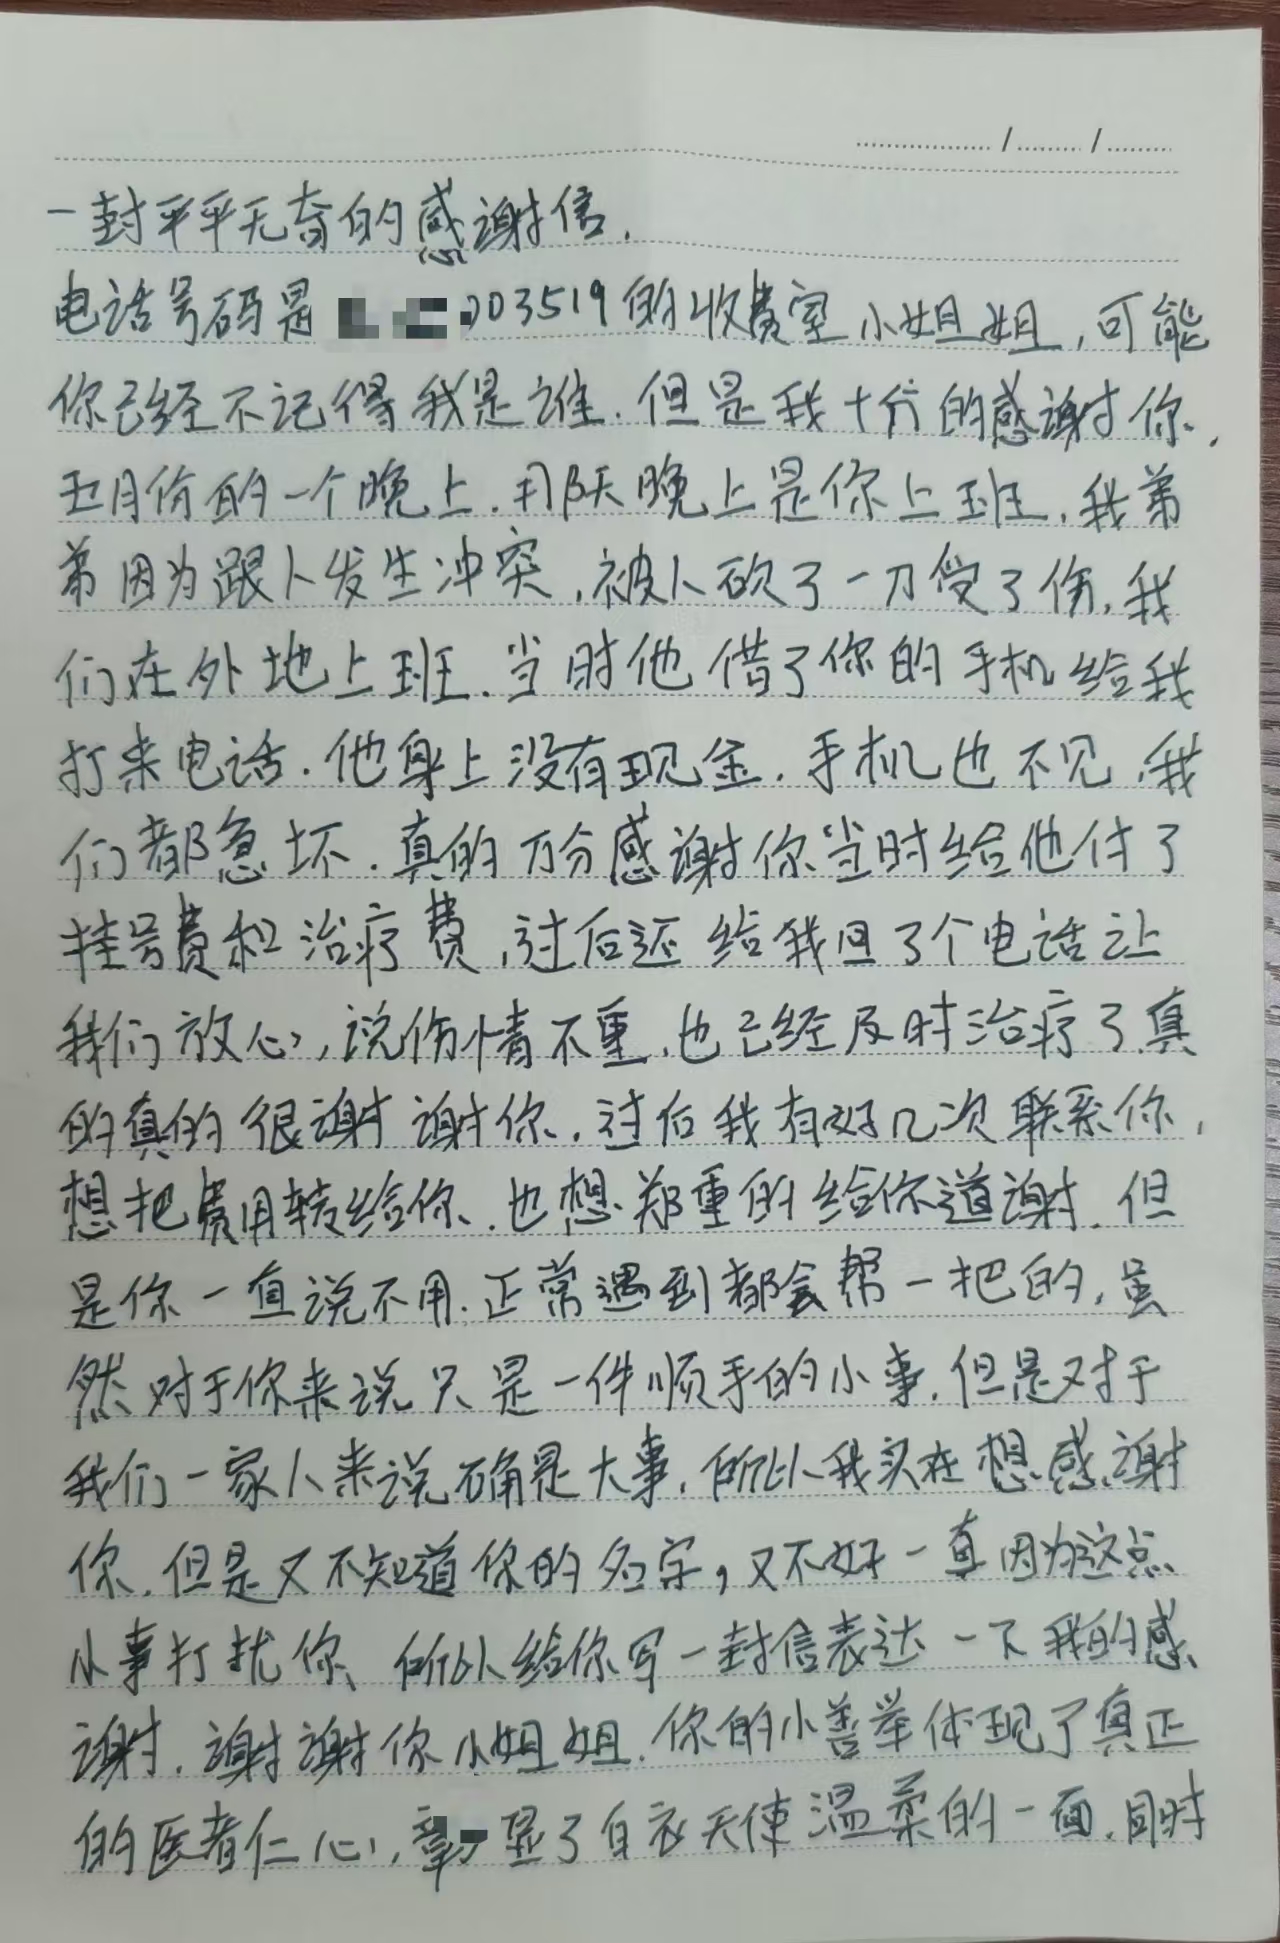 一封平平无奇的感谢信.
电话号码是003519的收费室小姐姐,可能
你已经不记得我是谁.但是我十分的感谢你,
五月份的一个晚上.那天晚上是你上班,我弟
弟因为跟人发生冲突,被人砍了一刀受了伤,我
们在外地上班.当时他借了你的手机给我
打来电话.他身上没有现金.手机也不见,我
们都急坏.真的万分感谢你当时给他付了
挂号费和治疗费,过后还给我回了个电话让
我们放心,说伤情不重,也已经及时治疗了.真
的真的很谢谢你.过后我有好几次联系你,
想把费用转给你.也想郑重的给你道谢.但
是你一直说不用.正常遇到都会帮一把的,虽
然对于你来说只是一件顺手的小事.但是对于
我们一家人来说确是大事.所以我实在想感谢
你.但是又不知道你的名字,又不好一直因为这点
小事打扰你、所以给你写一封信表达一下我的感
谢.谢谢你小姐姐.你的小善举体现了真正
的医者仁心,彰显了白衣天使温柔的一面.同时